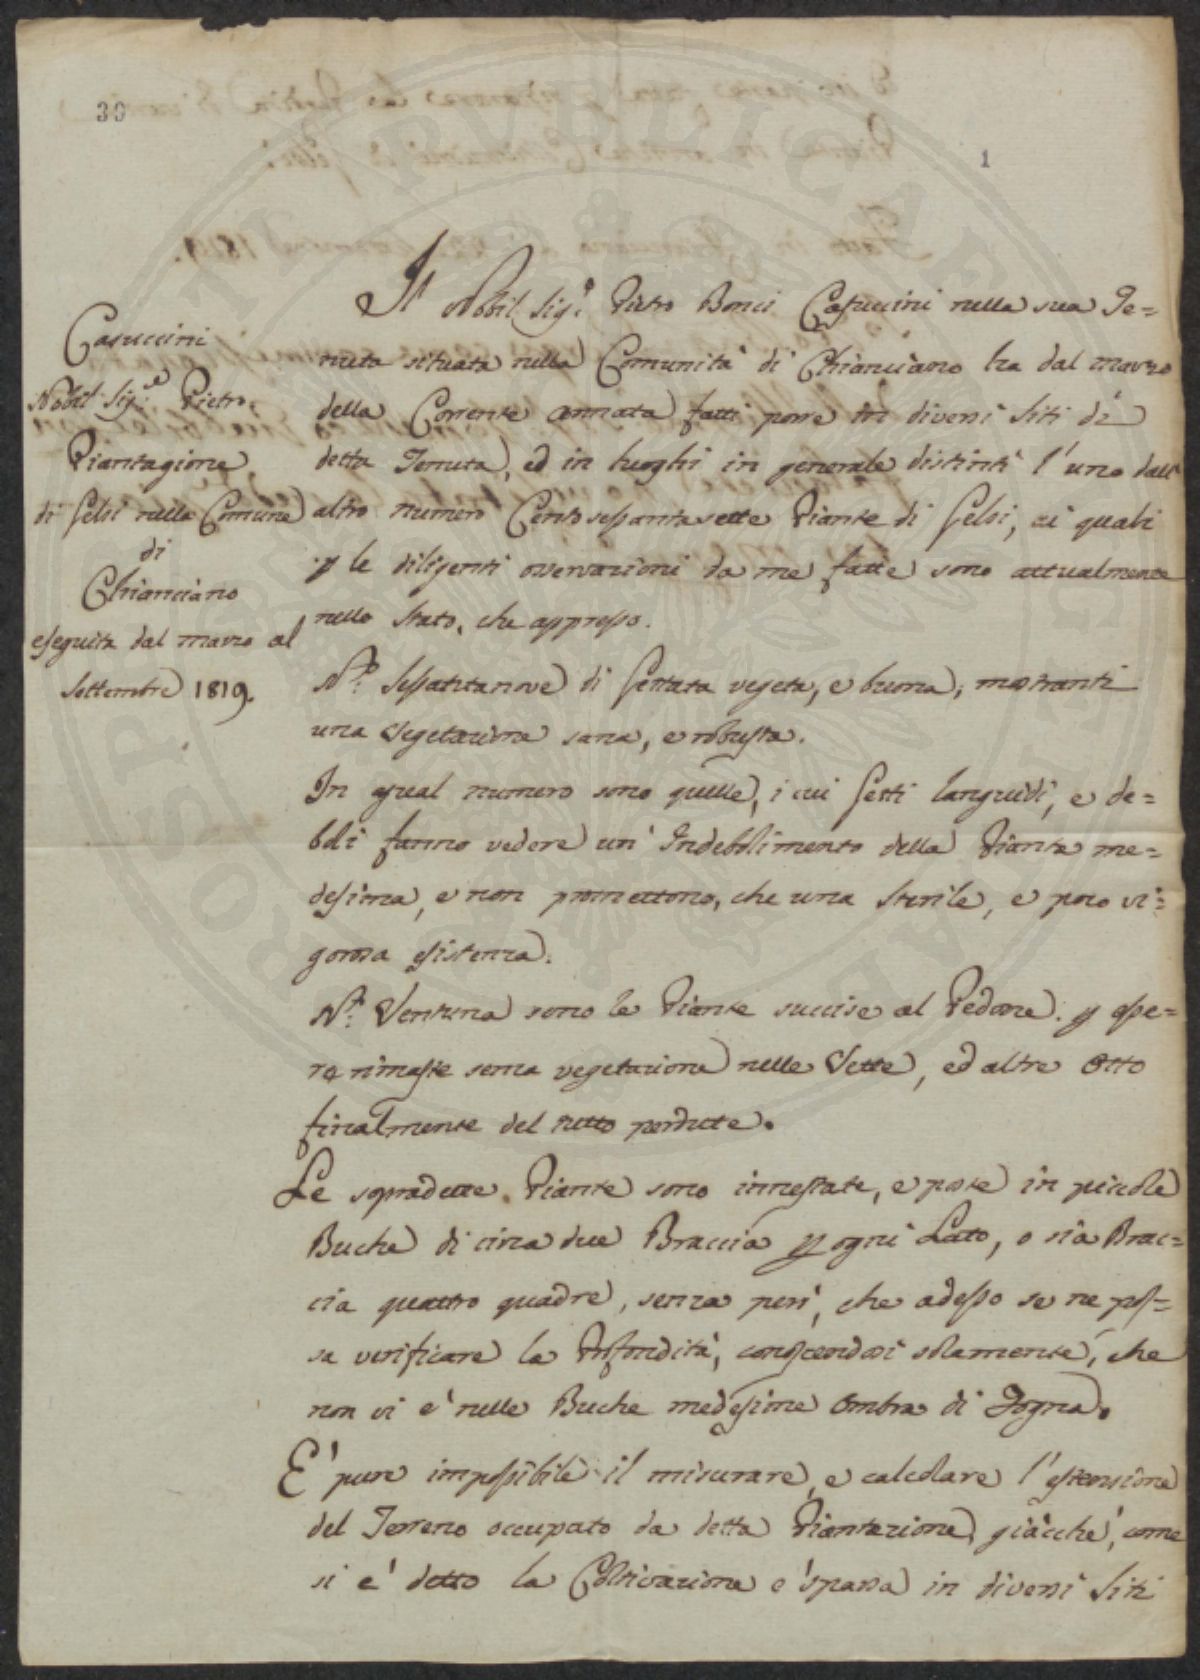 30
1
Casuccini
Nobil Sig.e Pietro.
Piantagione
di Gelsi nella Comune
di
Chianciano
eseguita dal marzo al
settembre 1819.
Il Nobil Sig.e Pietro Bonci Casuccini nella sua Te=
nuta situata nella Comunità di Chianciano ha dal marzo
della Corrente annata fatti porre in diversi Siti di
detta Tenuta, ed in luoghi in generale distinti l'uno dall'
altro numero Centosessantasette Piante di Gelsi, ai quali
p le diligenti osservazioni da me fatte sono attualmente
nello Stato, che appresso.
N.o Sessantanove di Gettata vegeta, e buona, mostranti
una Vegetazione sana, e robusta.
In egual numero sono quelle, i cui Getti languidi, e de=
boli fanno vedere un' Indebolimento della Pianta me=
desima, e non promettono, che una sterile, e poco vi=
gorosa esistenza.
N.o Ventuna sono le Piante succise al Pedone. p esse=
re rimaste senza vegetazione nelle Vette, ed altre Otto
finalmente del tutto perdute.
Le sopradette Piante sono innestate, e poste in piccole
Buche di circa due Braccia p ogni Lato, o sia Brac=
cia quattro quadre, senza però, che adesso se ne pos=
sa verificare la Profondità, conoscendosi solamente, che
non vi è nelle Buche medesime Ombra di Fogna.
E' pure impossibile il misurare, e calcolare l'estensione
del Terreno occupato da detta Piantazione, giacchè, come
si è detto la Coltivazione è sparsa in diversi Siti